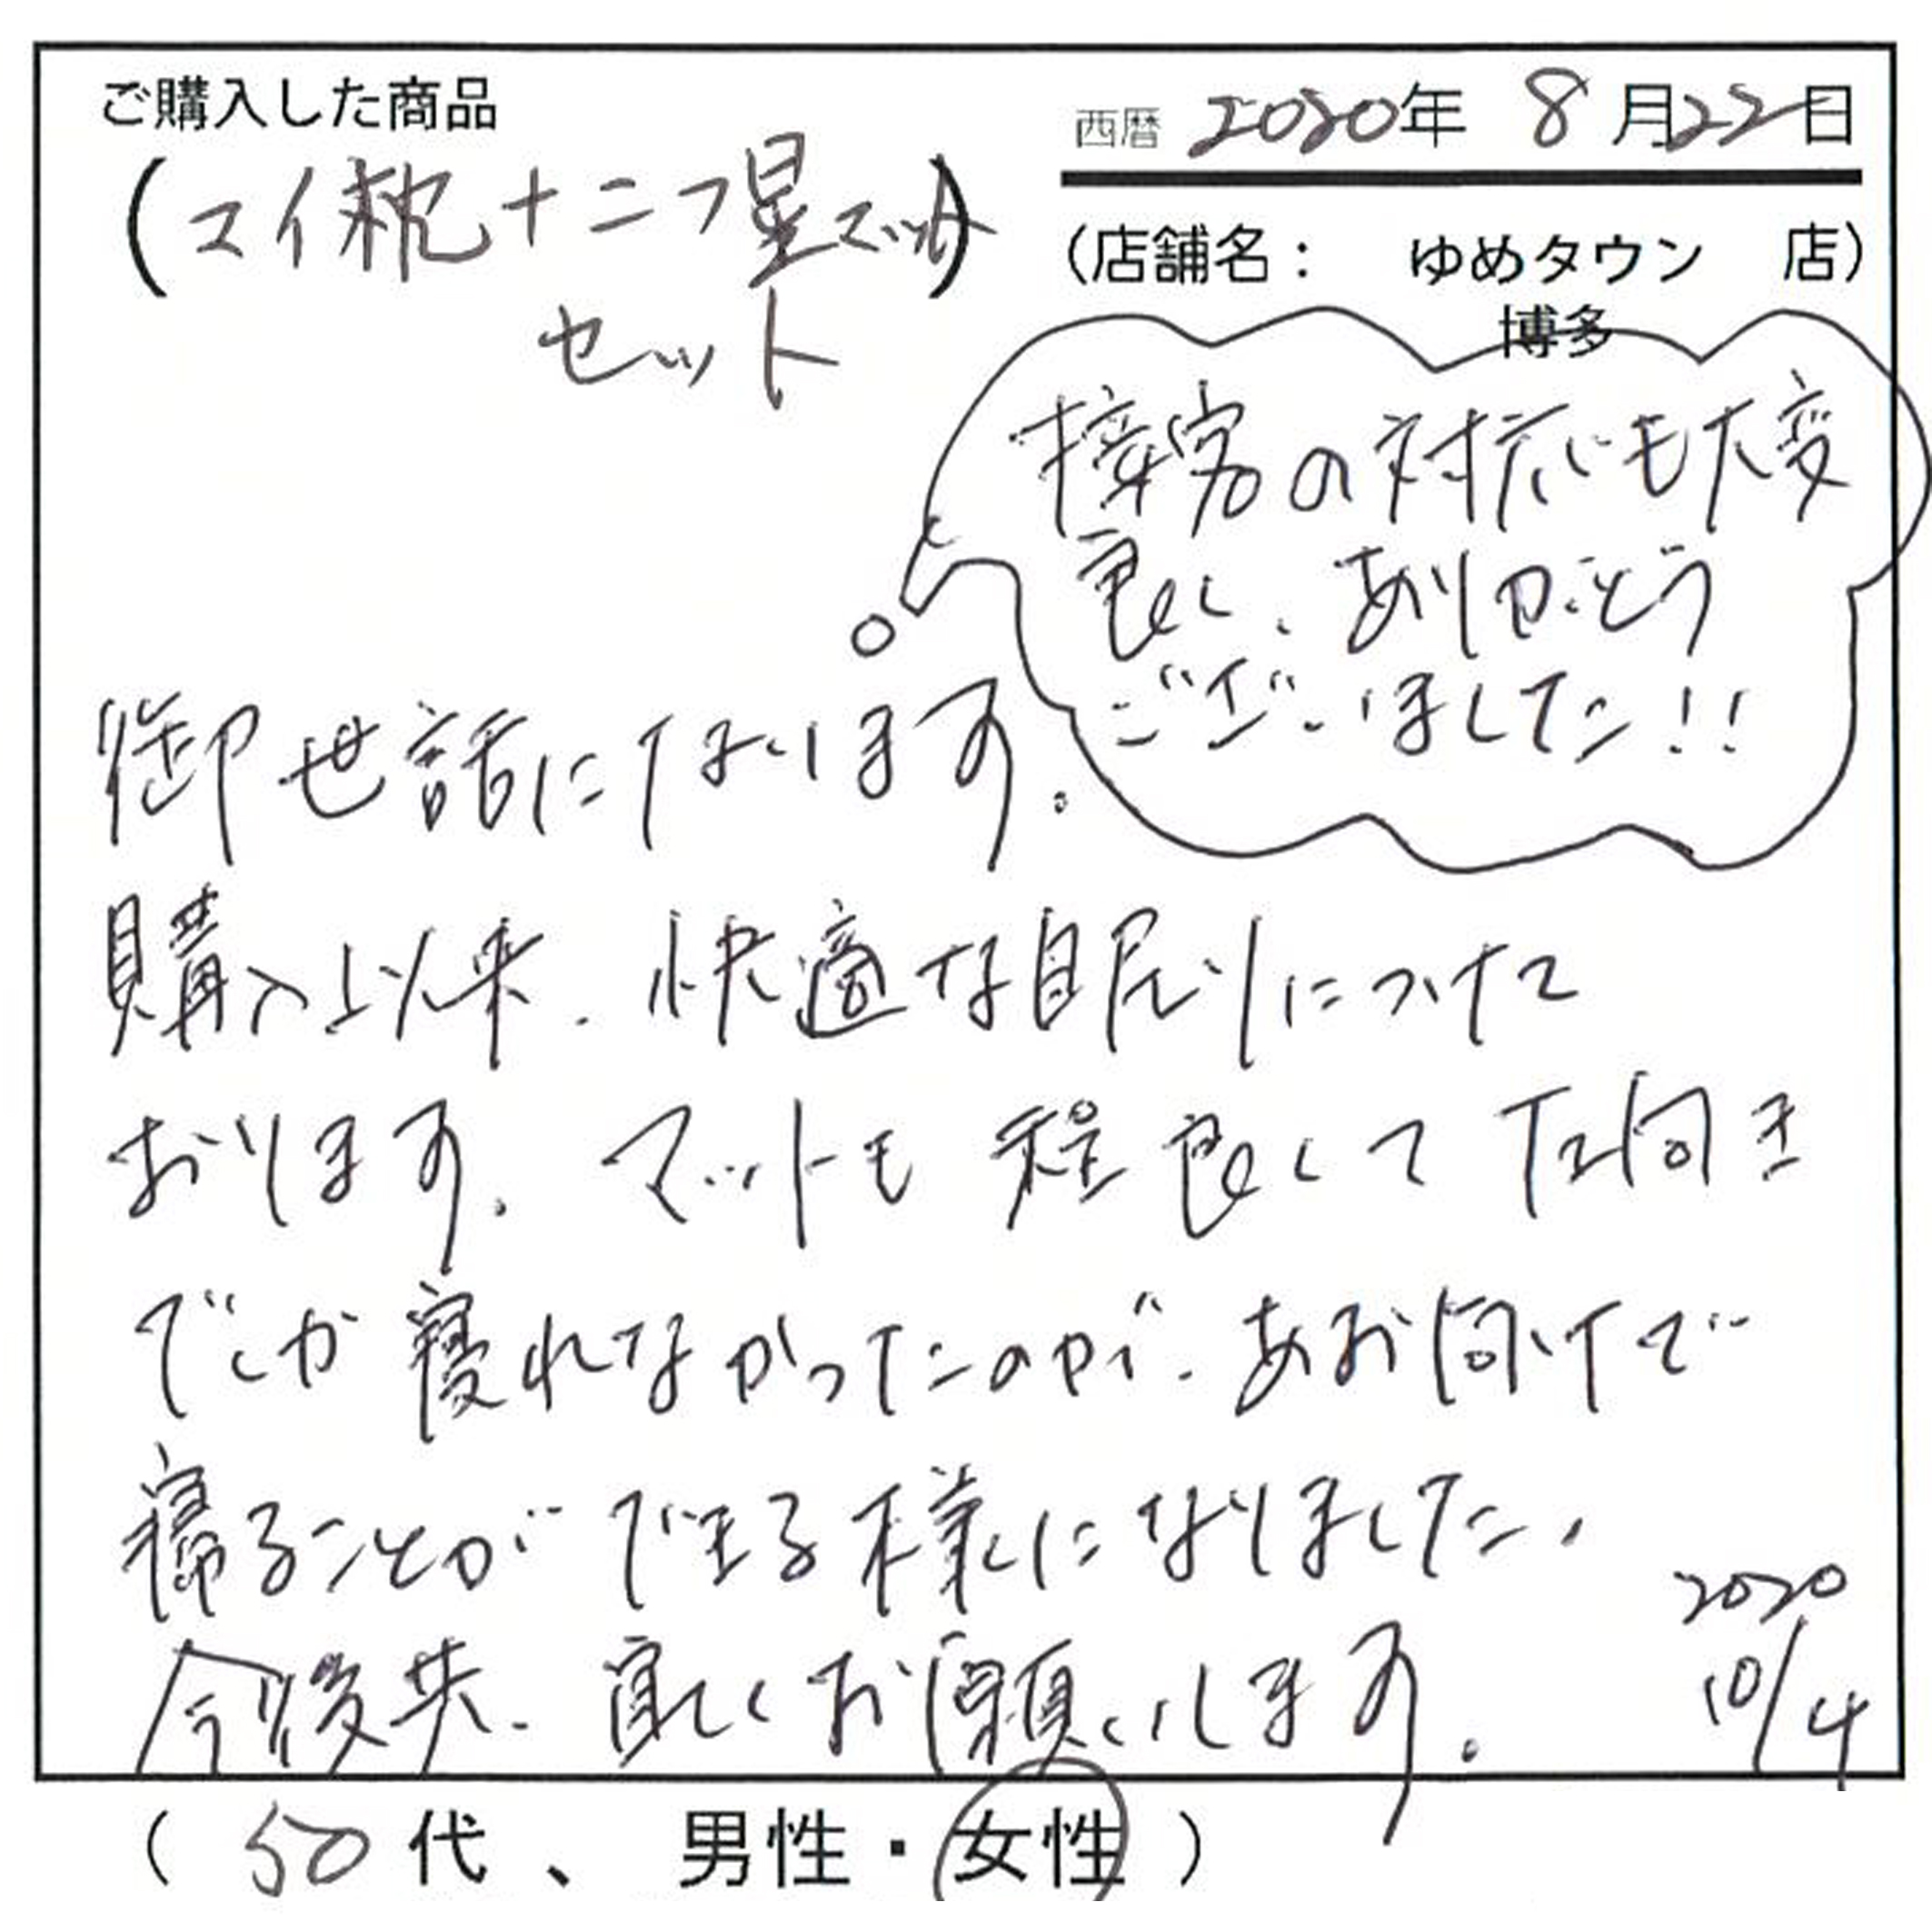 ご購入した商品
西暦 2020年 8月22日
(マイ枕+二つ星マット)
セット
(店舗名: ゆめタウン 店)
博多
接客の対応も大変
良く、ありがとう
ございました!!
御世話になります。
購入以来、快適な眠りにつけて
おります。マットも程良くて左向き
でしか寝れなかったのが、あお向けで
寝ることができる様になりました、
今後共、宜しくお願いします。
2020
10/4
(50代、男性・女性)